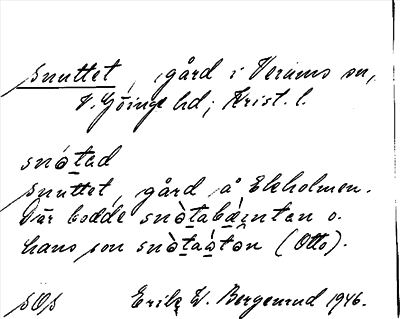 snuttet, gård i Verums sn,
V. Göinge hd; Krist. l.
snò̱tad
snuttet, gård å Ekholmen.
Där bodde snò̱tabǽntan o.
hans son snò̱taåton (Otto).
sOs Erik W. Bergenrud 1946.